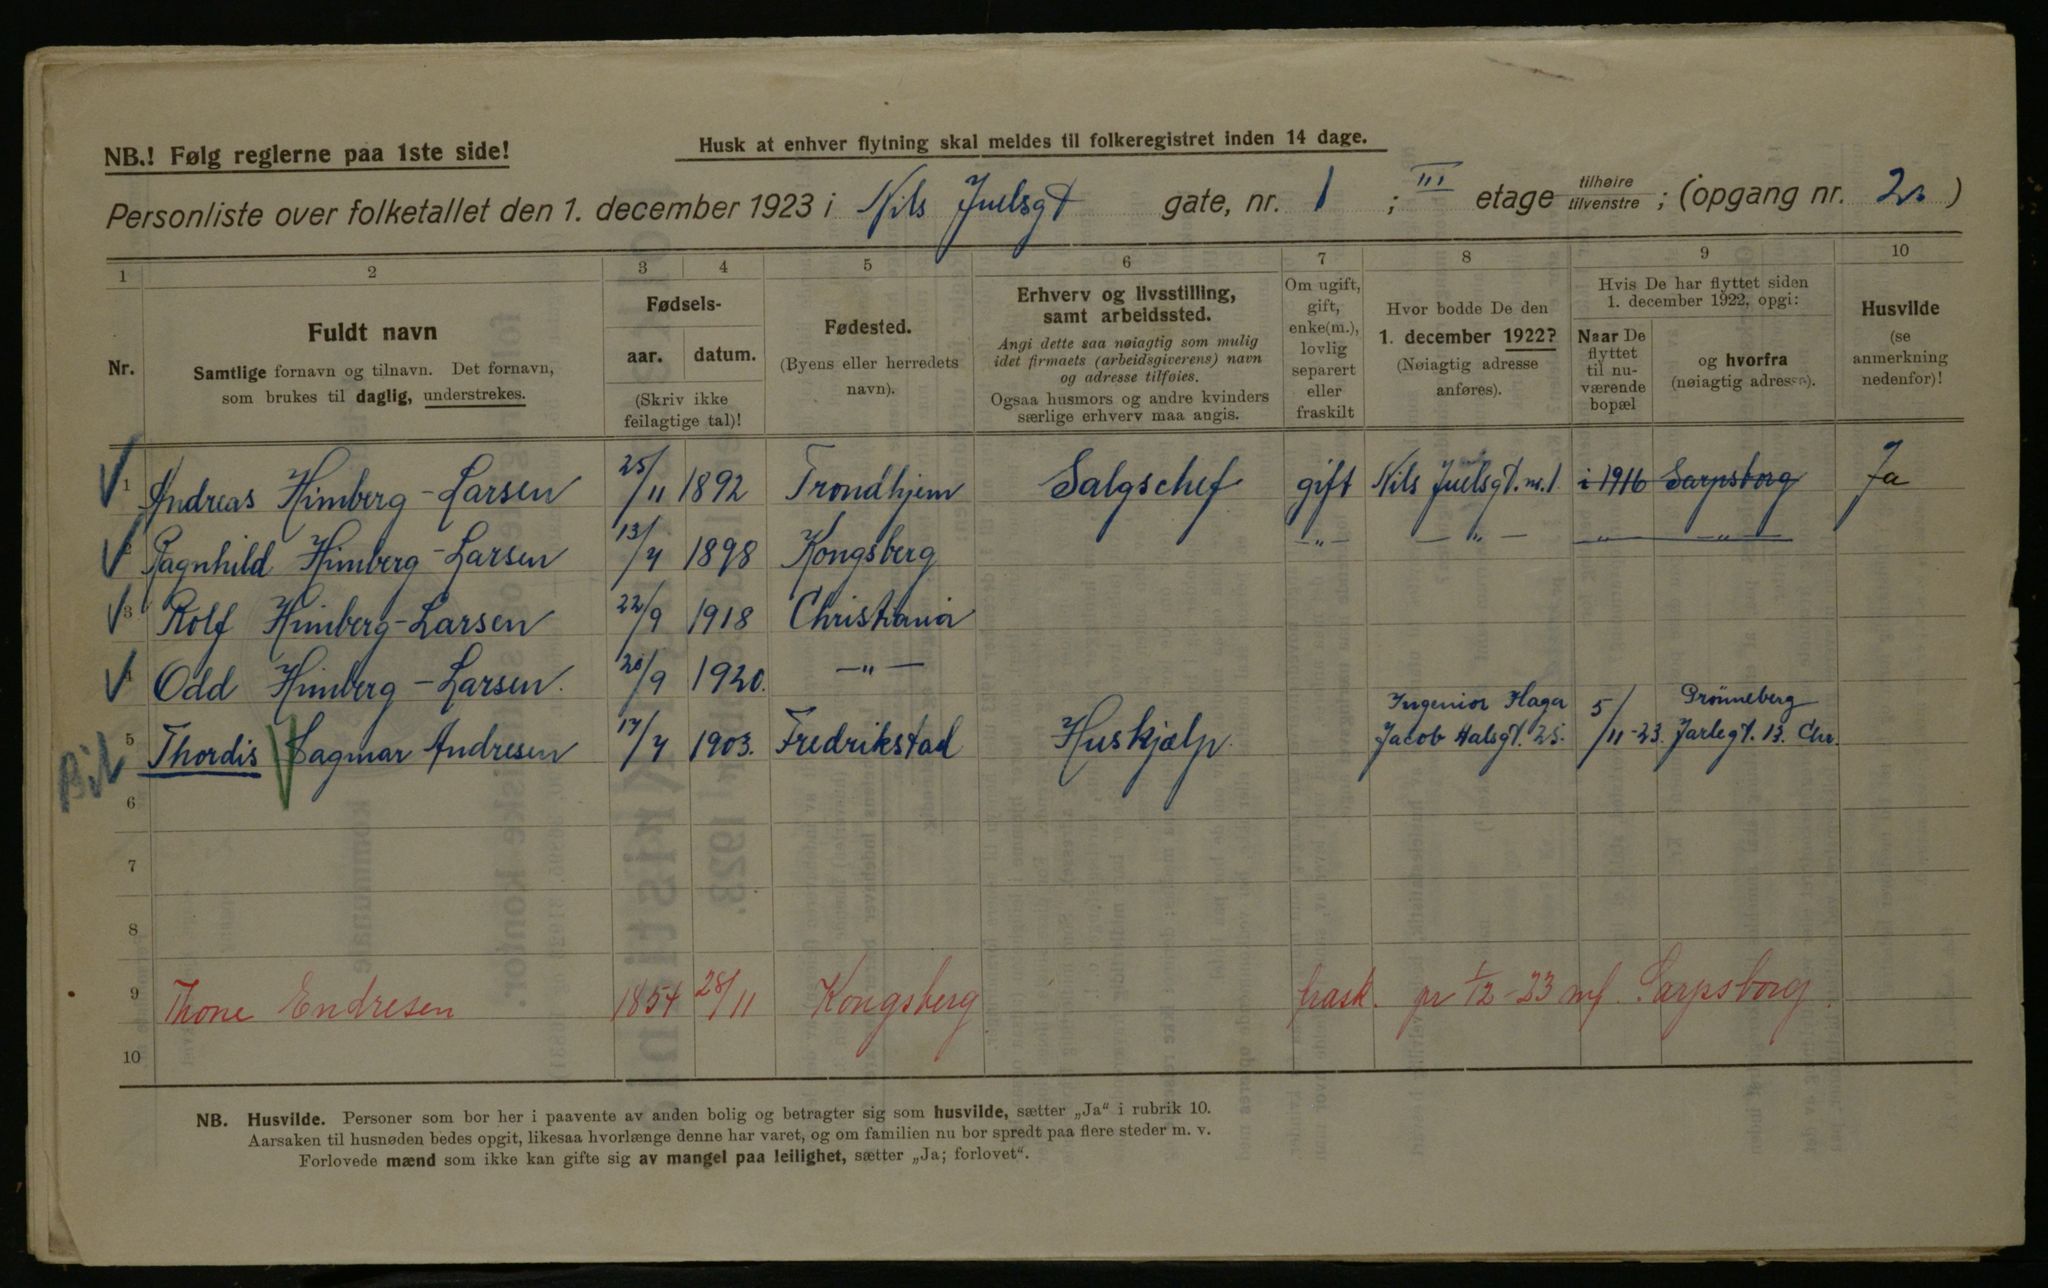 NB.! Følg reglerne paa 1ste side!
Husk at enhver flytning skal meldes til folkeregistret inden 14 dage.
Personliste over folketallet den 1. december 1923 i Nils Juelsgt gate, nr. 1 ; III etage tilhøire tilvenstre ; (opgang nr. 2 )
1 2 3 4 5 6 7 8 9 10
Nr.
Fuldt navn
Samtlige fornavn og tilnavn. Det fornavn,
som brukes til daglig, understrekes.
Fødsels-
aar. datum.
(Skriv ikke
feilagtige tal)!
Fødested.
(Byens eller herredets
navn).
Erhverv og livsstilling,
samt arbeidssted.
Angi dette saa nøiagtig som mulig
idet firmaets (arbeidsgiverens) navn
og adresse tilføies.
Ogsaa husmors og andre kvinders
særlige erhverv maa angis.
Om ugift,
gift,
enke(m.),
lovlig
separert
eller
fraskilt
Hvor bodde De den
1. december 1922?
(Nøiagtig adresse
anføres).
Hvis De har flyttet siden
1. december 1922, opgi:
Naar De
flyttet
til nu-
værende
bopæl
og hvorfra
(nøiagtig adresse).
Husvilde
(se
anmerkning
nedenfor)!
1 Andreas Himberg-Larsen 25/11 1892 Trondhjem Salgschef gift Nils Juelsgt. nr. 1 i 1916 Sarpsborg Ja
Ragnhild Himberg-Larsen 13/4 1898 Kongsberg —„— —„— —„— —„—
3 Rolf Himberg-Larsen 22/9 1918 Christiania
4 Odd Himberg-Larsen. 20/9 1920. —„—
5 Thordis Dagmar Andresen 17/4 1903. Fredrikstad Huskjælp. Ingeniør Haga Jacob Halsgt. 25. 5/11-23. Grönneberg Jarlegt. 13. Chr.
6
7
8
9 Thone Endresen 1854 28/11 Kongsberg frask. pr 1/12-23 mf. Sarpsborg.
10
NB. Husvilde. Personer som bor her i paavente av anden bolig og betragter sig som husvilde, sætter „Ja“ i rubrik 10.
Aarsaken til husnøden bedes opgit, likesaa hvorlænge denne har varet, og om familien nu bor spredt paa flere steder m. v.
Forlovede mænd som ikke kan gifte sig av mangel paa leilighet, sætter „Ja; forlovet“.